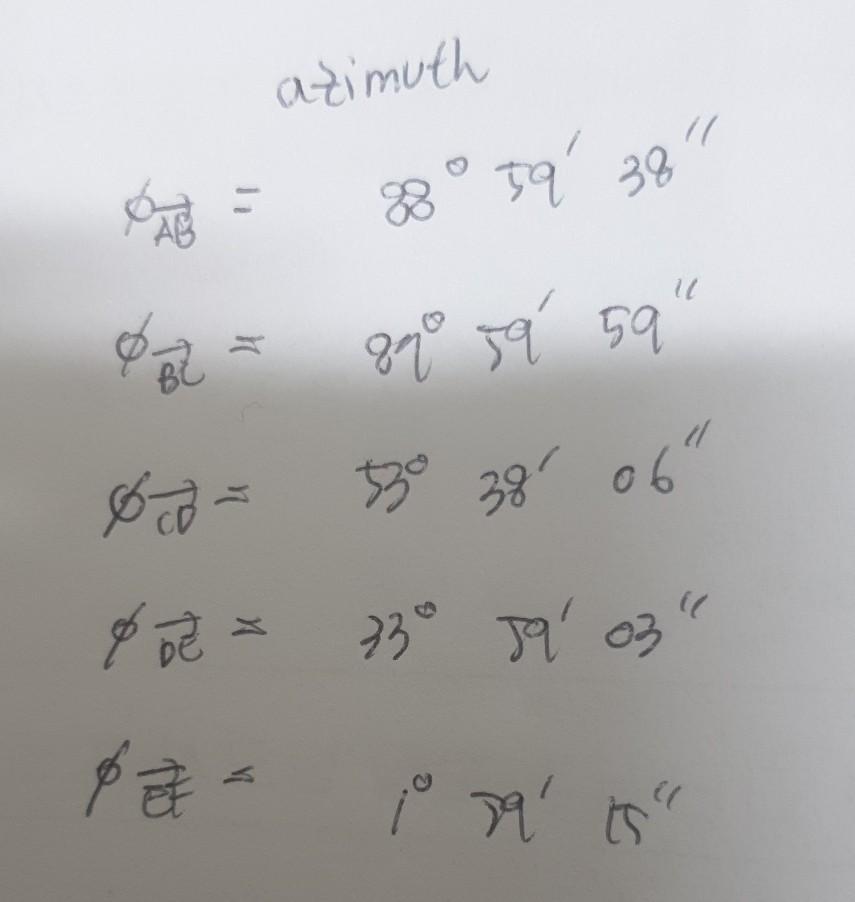 azimuth
φ AB = 88° 59' 38"
φ BC = 89° 59' 59"
φ CD = 53° 38' 06"
φ DE = 33° 59' 03"
φ EF = 1° 59' 15"